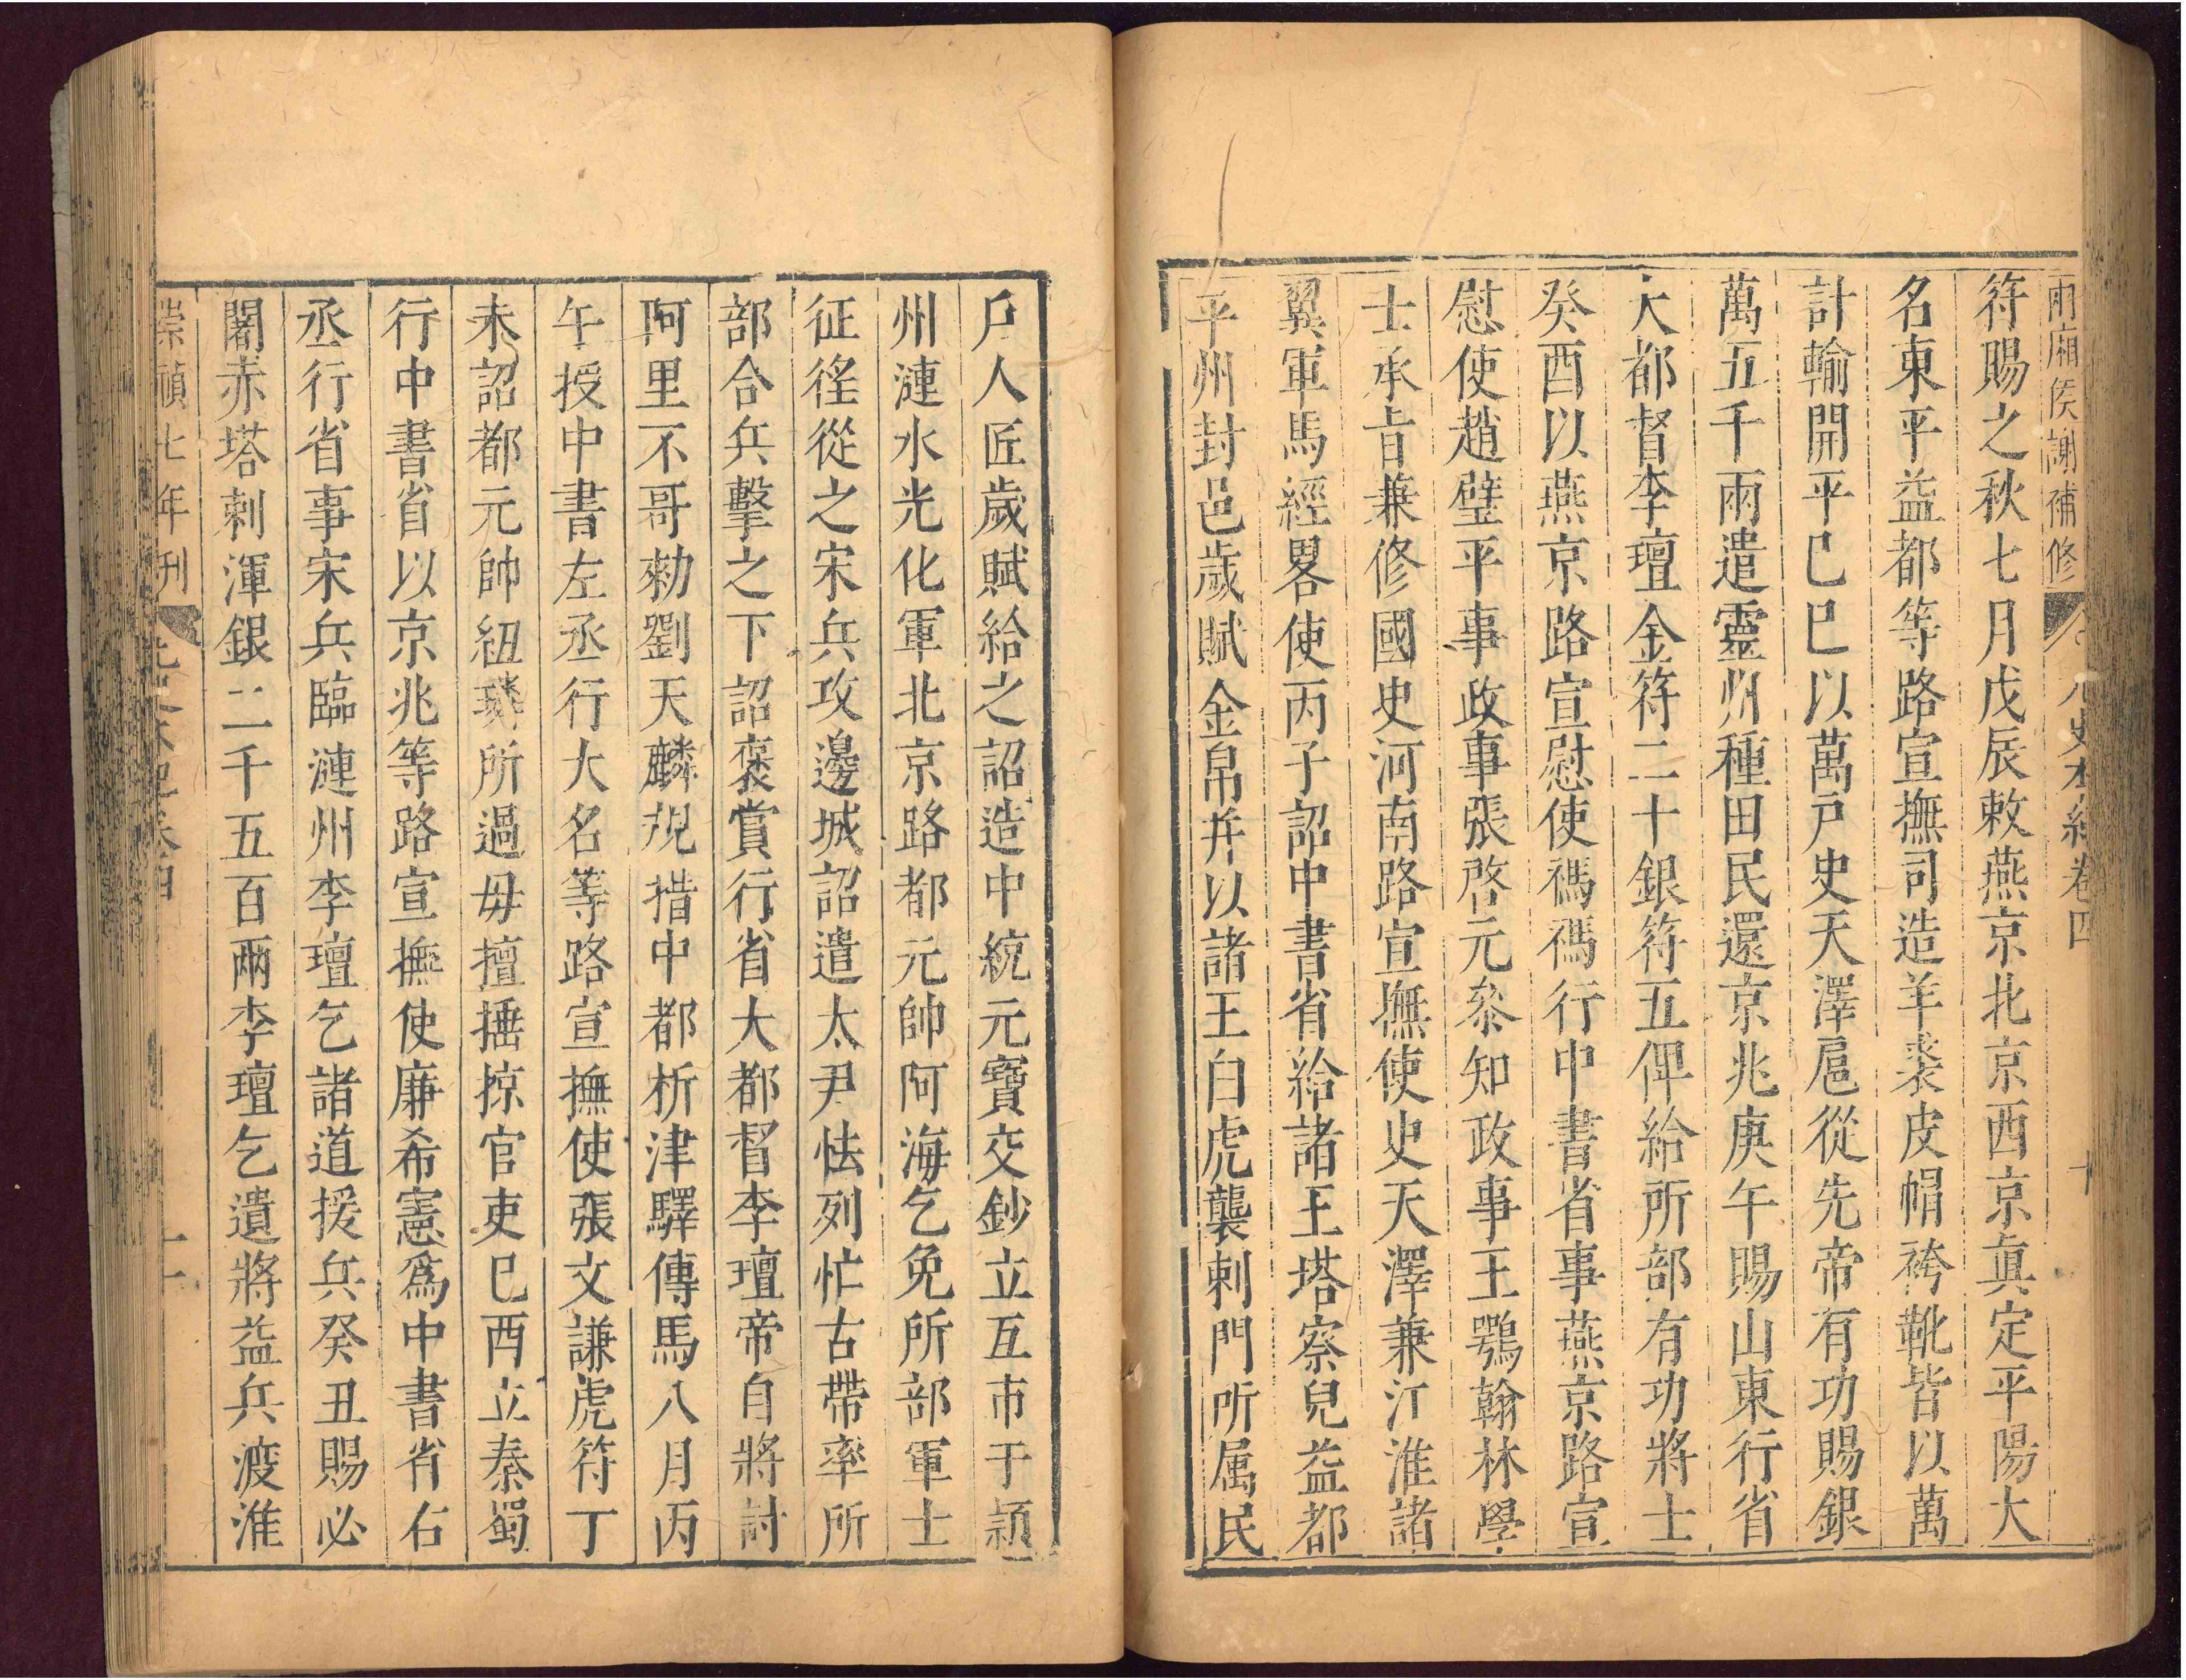 兩廂侯謝補修 元史本紀卷四 十
符賜之秋七月戊辰敕燕京北京西京真定平陽大
名東平益都等路宣撫司造羊裘皮帽袴靴皆以萬
計輸開平己巳以萬戶史天澤扈從先帝有功賜銀
萬五千兩遣靈州種田民還京兆庚午賜山東行省
大都督李璮金符二十銀符五俾給所部有功將士
癸酉以燕京路宣慰使禡禡行中書省事燕京路宣
慰使趙璧平事政事張啓元叅知政事王鶚翰林學
士承旨兼修國史河南路宣撫使史天澤兼江淮諸
翼軍馬經畧使丙子詔中書省給諸王塔察兒益都
平州封邑歲賦金帛并以諸王白虎襲剌門所属民
戶人匠歲賦給之詔造中統元寶交鈔立互市于潁
州漣水光化軍北京路都元帥阿海乞免所部軍士
征徭從之宋兵攻邊城詔遣太尹怯列忙古帶率所
部合兵擊之下詔褒賞行省大都督李璮帝自將討
阿里不哥勑劉天麟規措中都析津驛傳馬八月丙
午授中書左丞行大名等路宣撫使張文謙虎符丁
未詔都元帥紐璘所過毋擅捶掠官吏己酉立秦蜀
行中書省以京兆等路宣撫使廉希憲爲中書省右
丞行省事宋兵臨漣州李璮乞諸道援兵癸丑賜必
闍赤塔剌渾銀二千五百兩李璮乞遣將益兵渡淮
崇禎七年刊 元史本紀卷四 十一